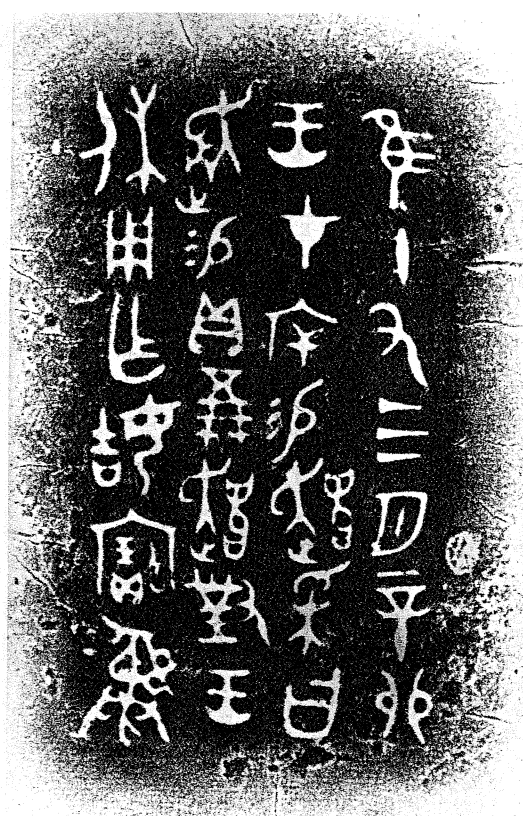 隹十又三月辛卯
王才斥易趞采曰
易貝五朋趞對王
休用乍姞寶彝